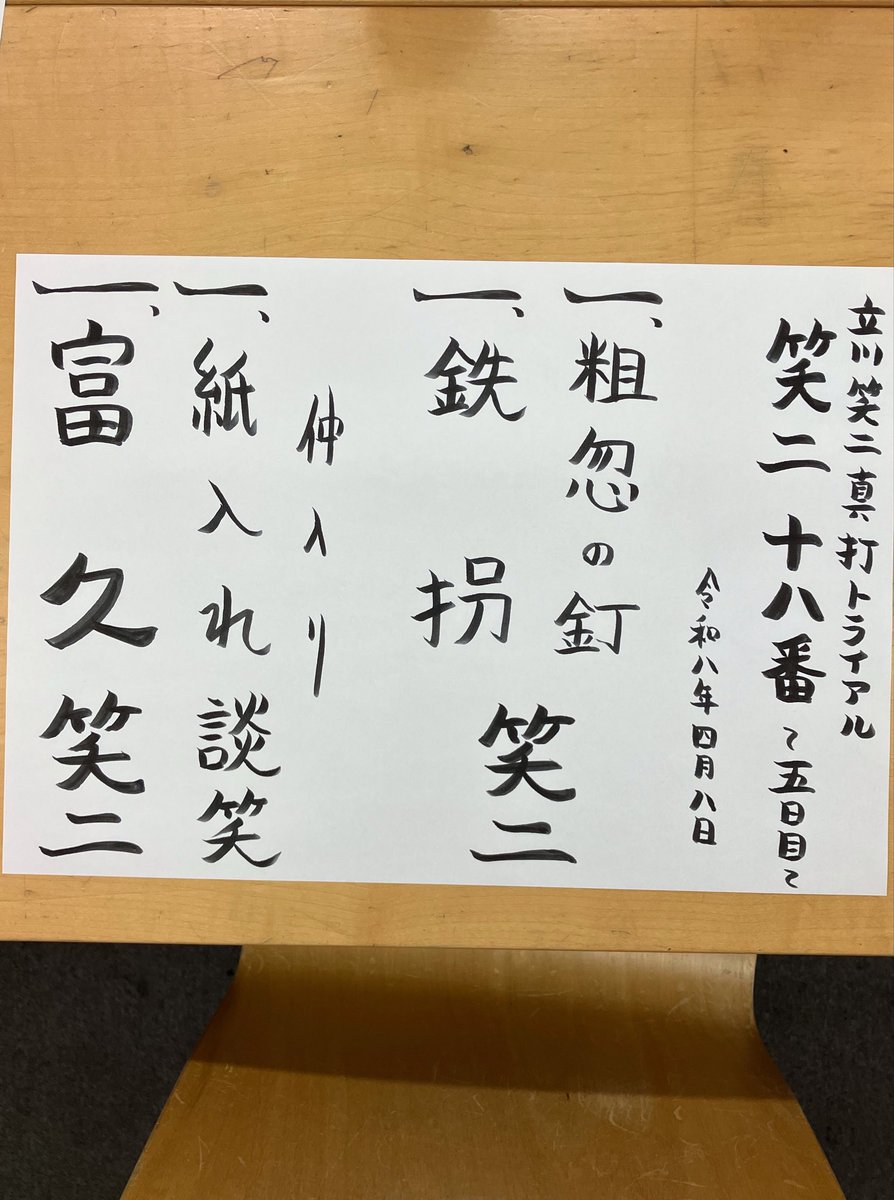 立川笑二真打トライアル
笑二十八番～五日目～
令和八年四月八日
一、粗忽の釘
一、鉄拐
笑二
仲入り
一、紙入れ 談笑
一、富久 笑二